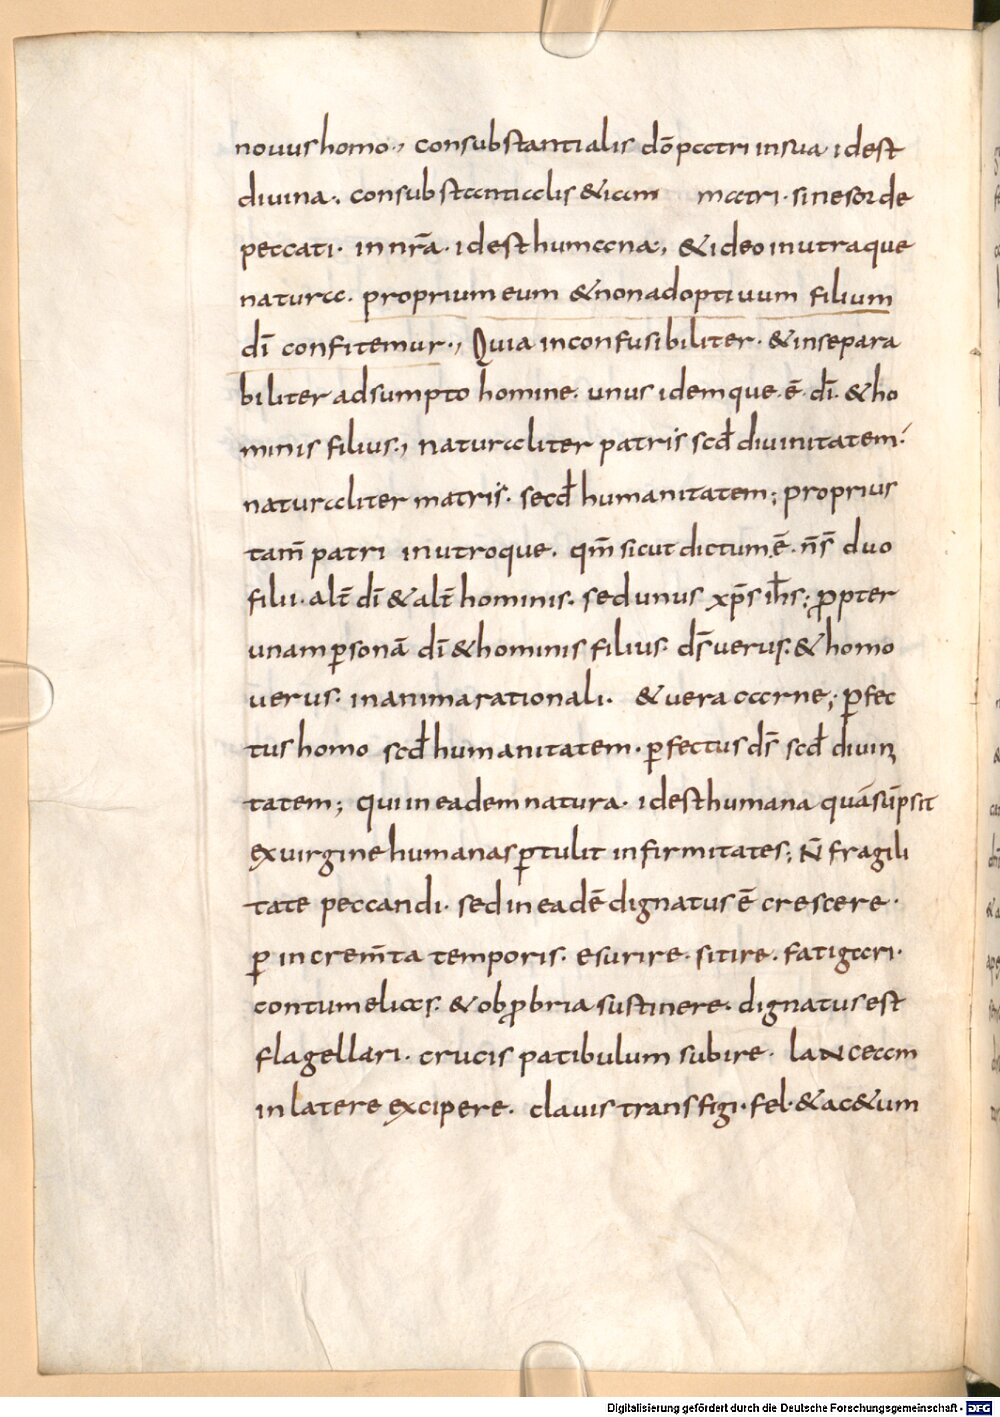 novus homo., consubstantialis dō patri in sua idest
divina., consubstantialis &iam matri· sine sorde
peccati· in nr̄a· idest humana, & ideo in utraque
natura. proprium eum & non adoptivum filium
dī confitemur., Quia inconfusibiliter· & insepara
biliter adsumpto homine. unus idemque·ē· dī· & ho
minis filius., naturaliter patris scd̄ divinitatem·
naturaliter matris· secd̄ humanitatem; proprius
tam̄ patri in utroque. qm̄ sicut dictum ē· n̄ s̄ duo
filii· alt̄ dī & alt̄ hominis· sed unus xp̄s ih̄s; ꝓpter
unam ꝑsonā dī & hominis filius· ds̄ verus· & homo
verus· in anima rationali· & vera carne; ꝑfec
tus homo scd̄ humanitatem· ꝑfectus ds̄ scd̄ divini
tatem; qui in eadem natura· idest humana quā sūpsit
ex virgine humanas ꝑtulit infirmitates; N̄ fragili
tate peccandi· sed in eadē dignatus ē crescere·
ꝑ increm̄ta temporis· esurire· sitire· fatigari·
contumelias· & obꝓbria sustinere· dignatus est
flagellari· crucis patibulum subire· lanceam
in latere excipere· clavis transfigi· fel· & ac&um
Digitalisierung gefördert durch die Deutsche Forschungsgemeinschaft - DFG